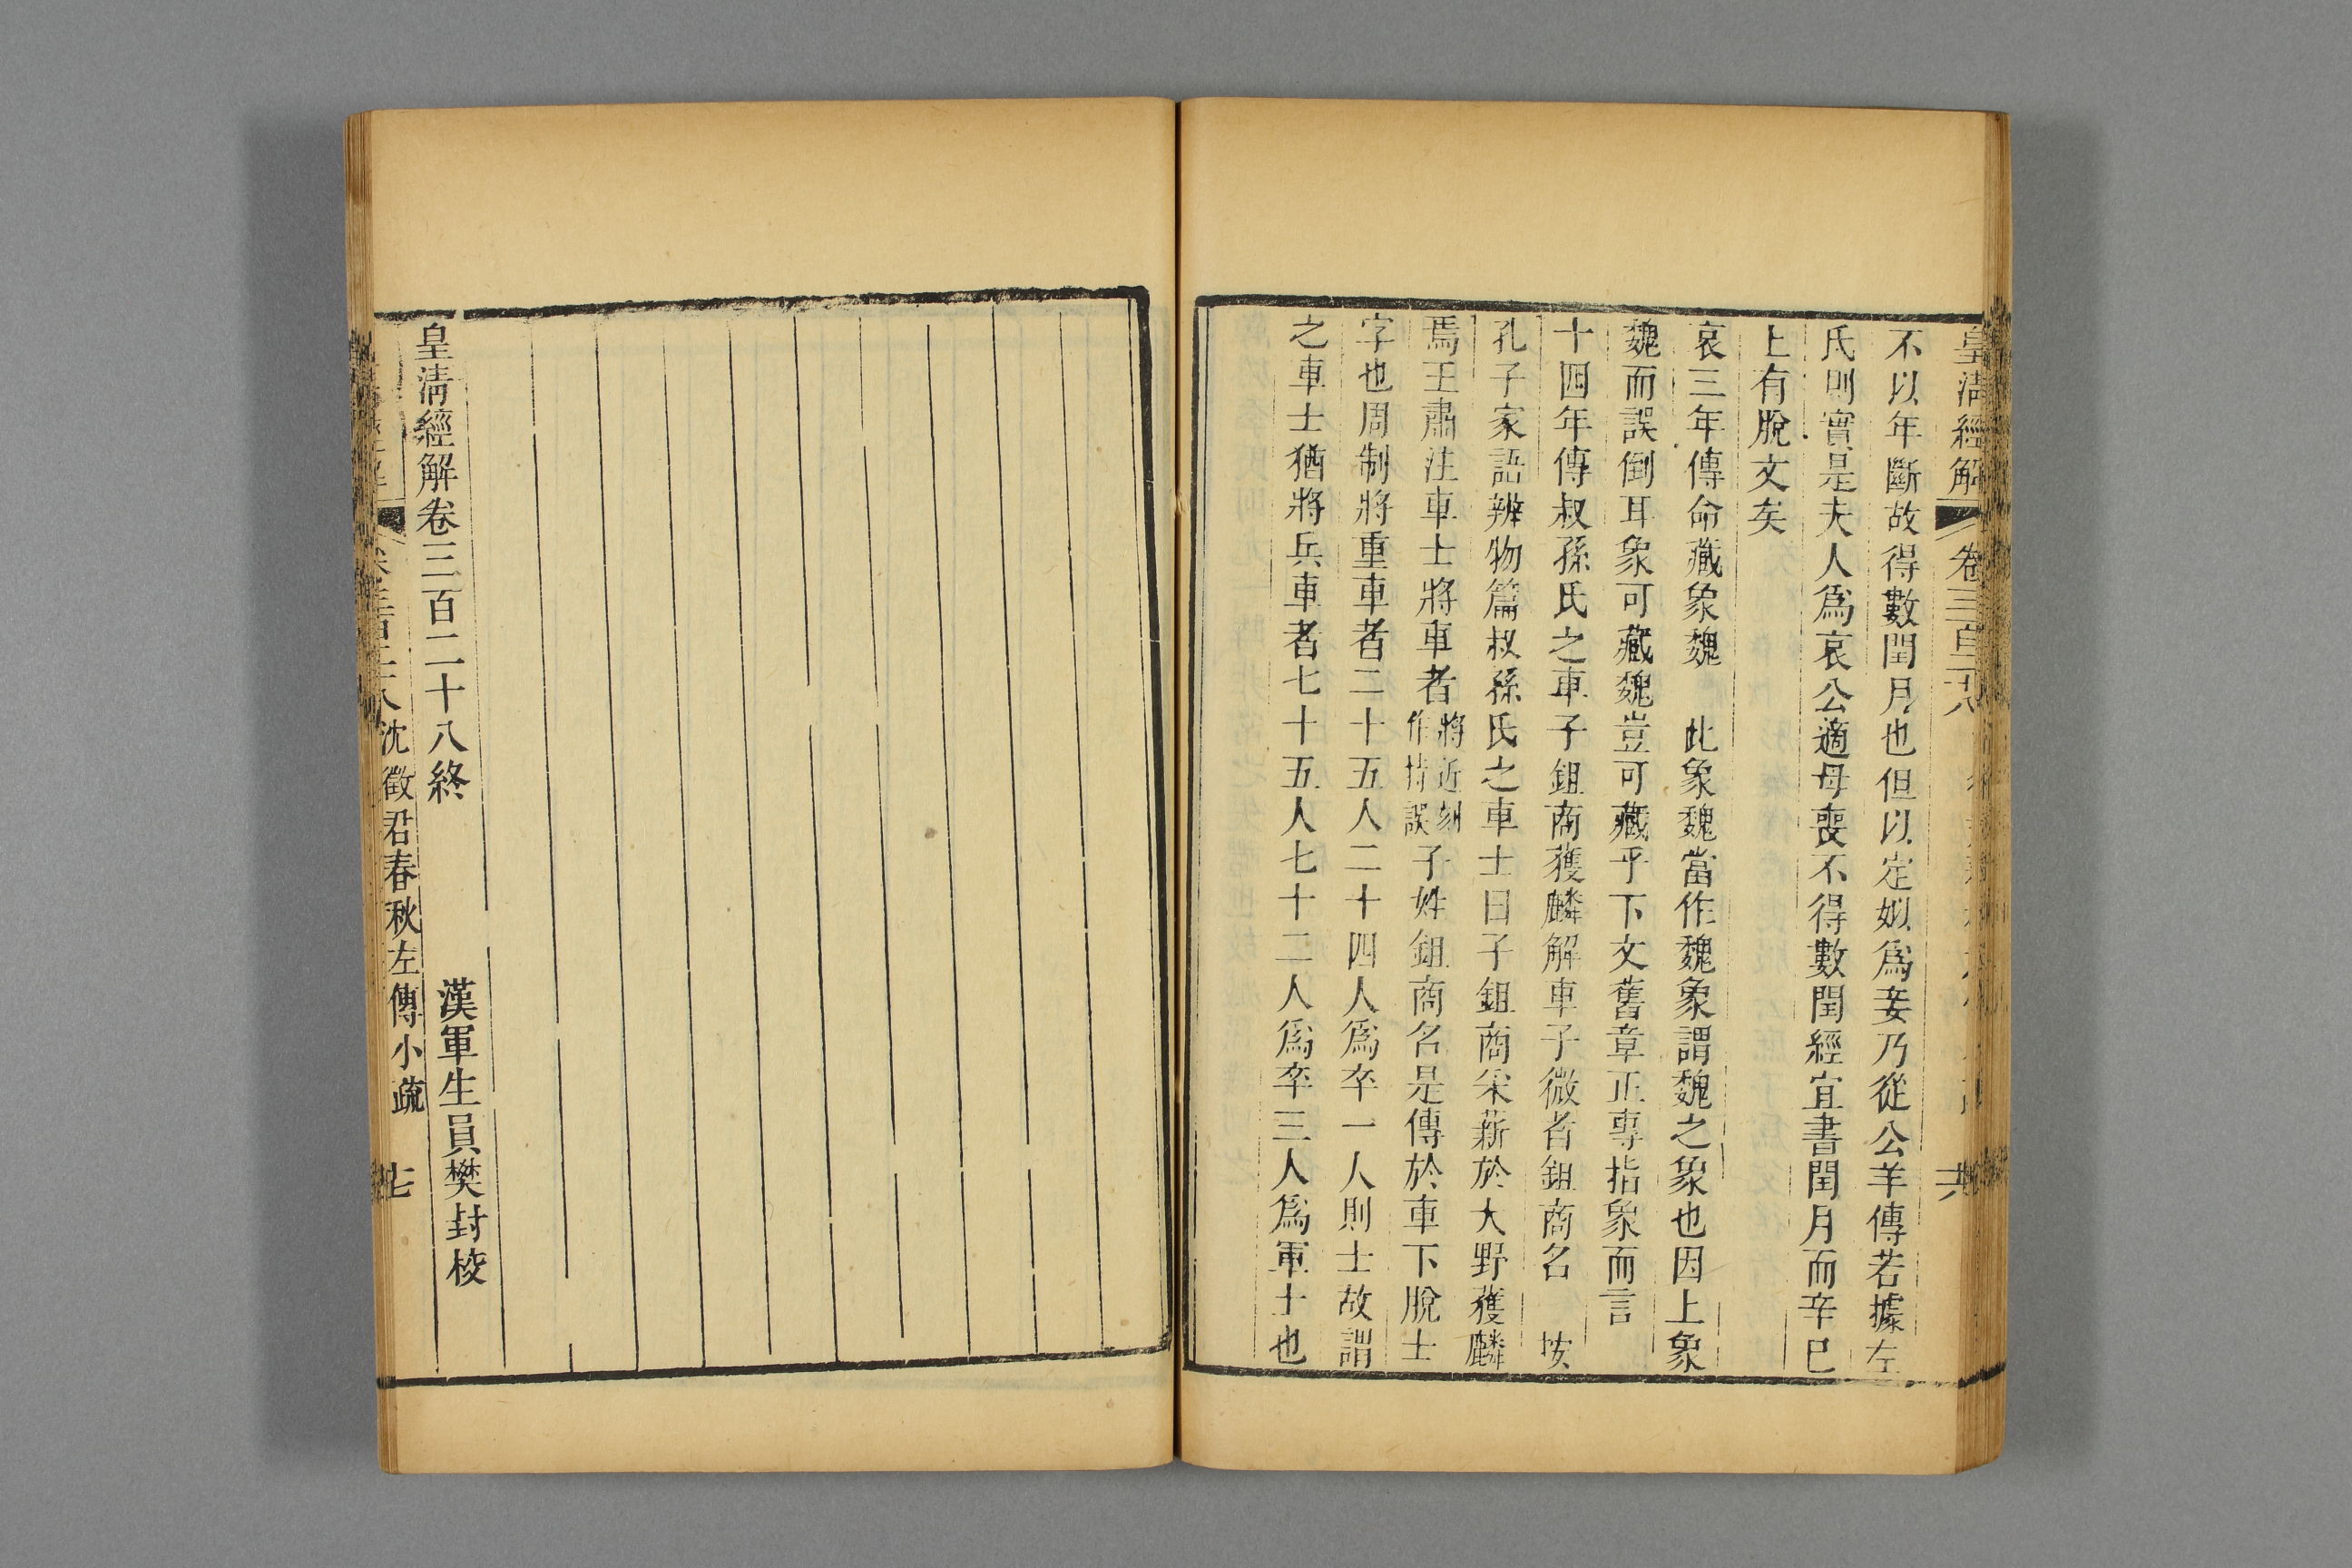 皇清經解
卷三百二十八
不以年斷故得數閏月也但以定姒爲妾乃從公羊傳若據左
氏則實是夫人爲哀公適母喪不得數閏經宜書閏月而辛巳
上有脫文矣
哀三年傳命藏象魏　此象魏當作魏象謂魏之象也因上象
魏而誤倒耳象可藏魏豈可藏乎下文舊章正專指象而言
十四年傳叔孫氏之車子鉏商獲麟解車子微者鉏商名　按
孔子家語辨物篇叔孫氏之車士曰子鉏商采薪於大野獲麟
焉王肅注車士將車者將近刻作持誤子姓鉏商名是傳於車下脫士
字也周制將重車者二十五人二十四人爲卒一人則士故謂
之車士猶將兵車者七十五人七十二人爲卒三人爲軍士也
皇清經解卷三百二十八終　漢軍生員樊封校
沈徵君春秋左傳小疏